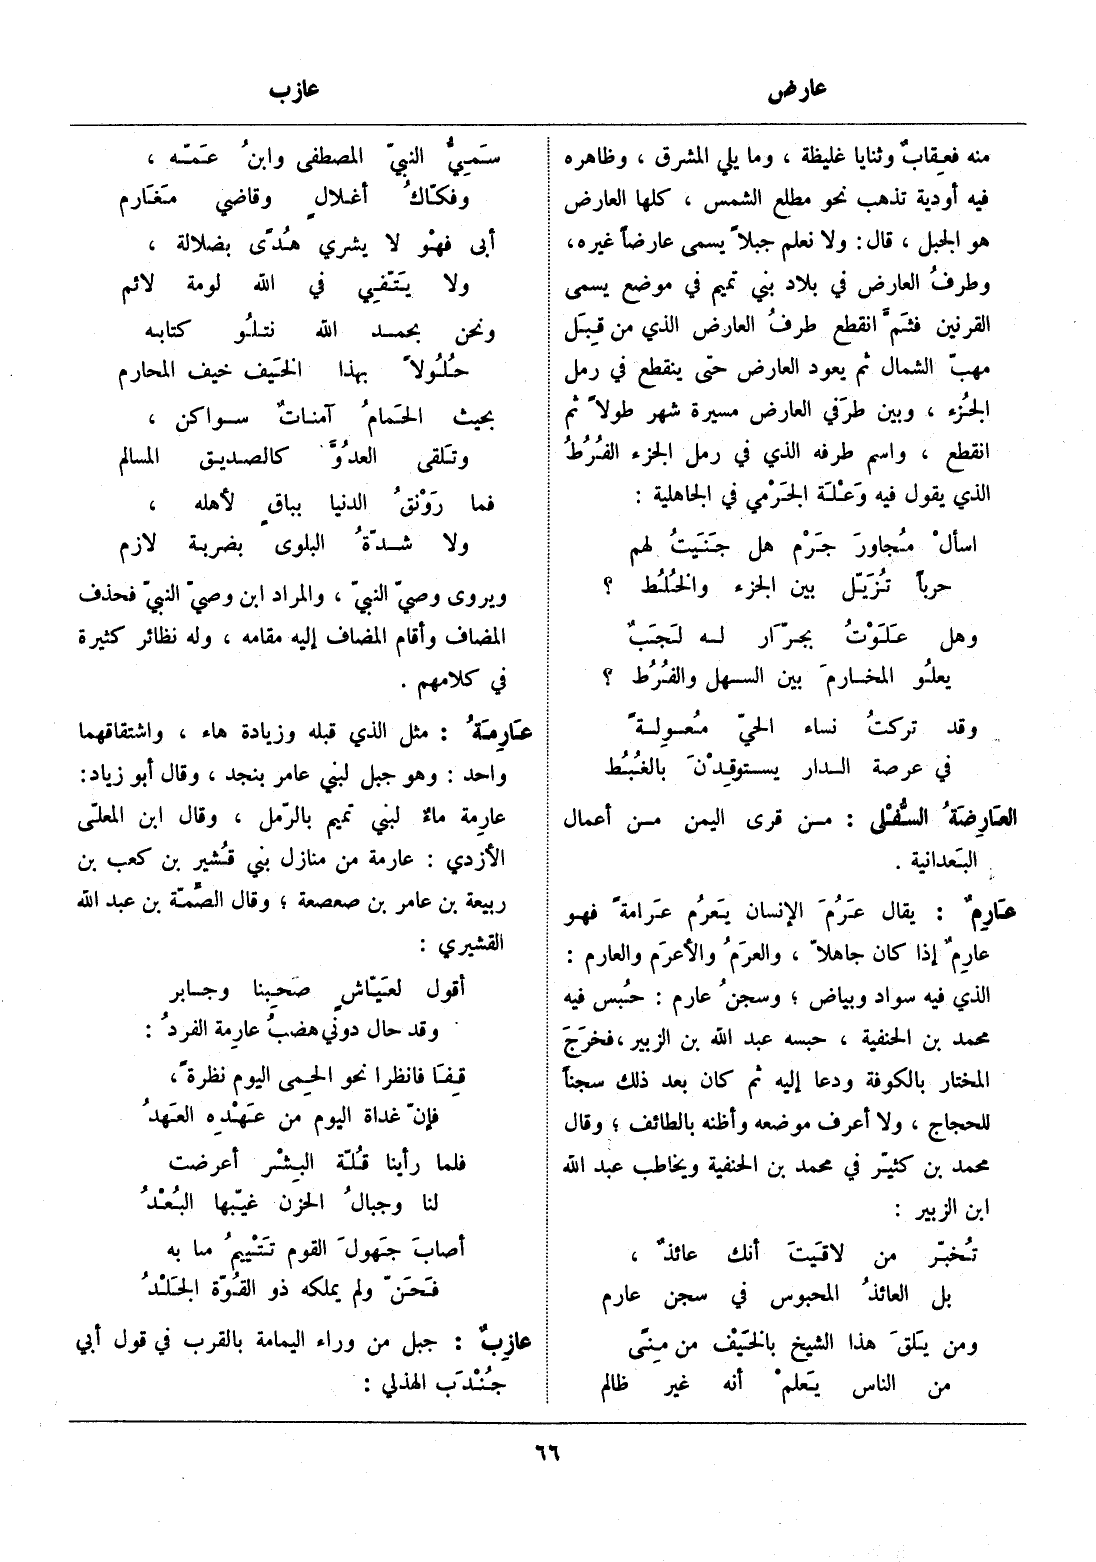 عارض
عازب
منه فعِقابٌ وثنايا غليظة ، وما يلي المشرق ، وظاهره
فيه أودية تذهب نحو مطلع الشمس ، كلها العارض
هو الجبل ، قال : ولا نعلم جبلاً يسمى عارضاً غيره،
وطرفُ العارض في بلاد بني تميم في موضع يسمى
القرنين فثَمَّ انقطع طرفُ العارض الذي من قِبَل
مهبّ الشمال ثم يعود العارض حتى ينقطع في رمل
الجُزء ، وبين طرَفي العارض مسيرة شهر طولاً ثم
انقطع ، واسم طرفه الذي في رمل الجزء الفُرُطُ
الذي يقول فيه وَعْلَة الجَرْمي في الجاهلية :
اسألْ مُجاورَ جَرْم هل جَنَيتُ لهم
حرباً تُزَيّل بين الجزء والخُلُط ؟
وهل عَلَوْتُ بجرّار له لَجَبٌ
يعلُو المخارمَ بين السهل والفُرُط ؟
وقد تركتُ نساء الحيّ مُعولةً
في عرصة الدار يستوقِدْنَ بالغُبُط
العَارِضَةُ السُّفْلى : من قرى اليمن من أعمال
البَعدانية .
عَارِمٌ : يقال عَرُمَ الإنسان يَعرُم عَرامةً فهو
عارِمٌ إذا كان جاهلاً ، والعرَمُ والأعرَم والعارم :
الذي فيه سواد وبياض ؛ وسجنُ عارم : حُبس فيه
محمد بن الحنفية ، حبسه عبد الله بن الزبير ،فخرَجَ
المختار بالكوفة ودعا إليه ثم كان بعد ذلك سجناً
للحجاج ، ولا أعرف موضعه وأظنه بالطائف ؛ وقال
محمد بن كثيّر في محمد بن الحنفية ويخاطب عبد الله
ابن الزبير :
تُخبّر من لاقَيتَ أنك عائذٌ ،
بل العائذُ المحبوس في سجن عارم
ومن يَلقَ هذا الشيخ بالخَيْف من مِنىً
من الناس يَعلمْ أنه غير ظالم
سَمِيُّ النبيّ المصطفى وابنُ عَمّه ،
وفكّاكُ أغلالٍ وقاضي مَغَارم
أبى فهْو لا يشري هُدًى بضلالة ،
ولا يَتّقي في الله لومة لائم
ونحن بحمد الله نتلُو كتابه
حُلُولاً بهذا الخَيف خيف المحارم
بحيث الحَمامُ آمناتٌ سواكن ،
وتَلقى العدُوَّ كالصديق المسالم
فما رَوْنقُ الدنيا بباقٍ لأهله ،
ولا شدّةُ البلوى بضربة لازم
ويروى وصيّ النبيّ ، والمراد ابن وصيّ النبيّ فحذف
المضاف وأقام المضاف إليه مقامه ، وله نظائر كثيرة
في كلامهم .
عَارِمَةُ : مثل الذي قبله وزيادة هاء ، واشتقاقهما
واحد : وهو جبل لبني عامر بنجد ، وقال أبو زياد:
عارِمة ماءٌ لبني تميم بالرّمل ، وقال ابن المعلّى
الأزدي : عارمة من منازل بني قُشير بن كعب بن
ربيعة بن عامر بن صعصعة ؛ وقال الصِّمّة بن عبد الله
القشيري :
أقول لعَيّاشٍ صَحِبنا وجابر
وقد حال دوني هضبُ عارِمة الفردُ :
قِفَا فانظرا نحو الحِمى اليوم نظرةً،
فإنّ غداة اليوم من عَهْدِه العَهدُ
فلما رأينا قُلّة البِشْر أعرضت
لنا وجبالُ الحزن غيّبها البُعْدُ
أصابَ جَهولَ القوم تَتْييمُ ما به
فَحَنّ ولم يملكه ذو القُوّة الجَلْدُ
عازِبٌ : جبل من وراء اليمامة بالقرب في قول أبي
جُنْدَب الهذلي :
٦٦